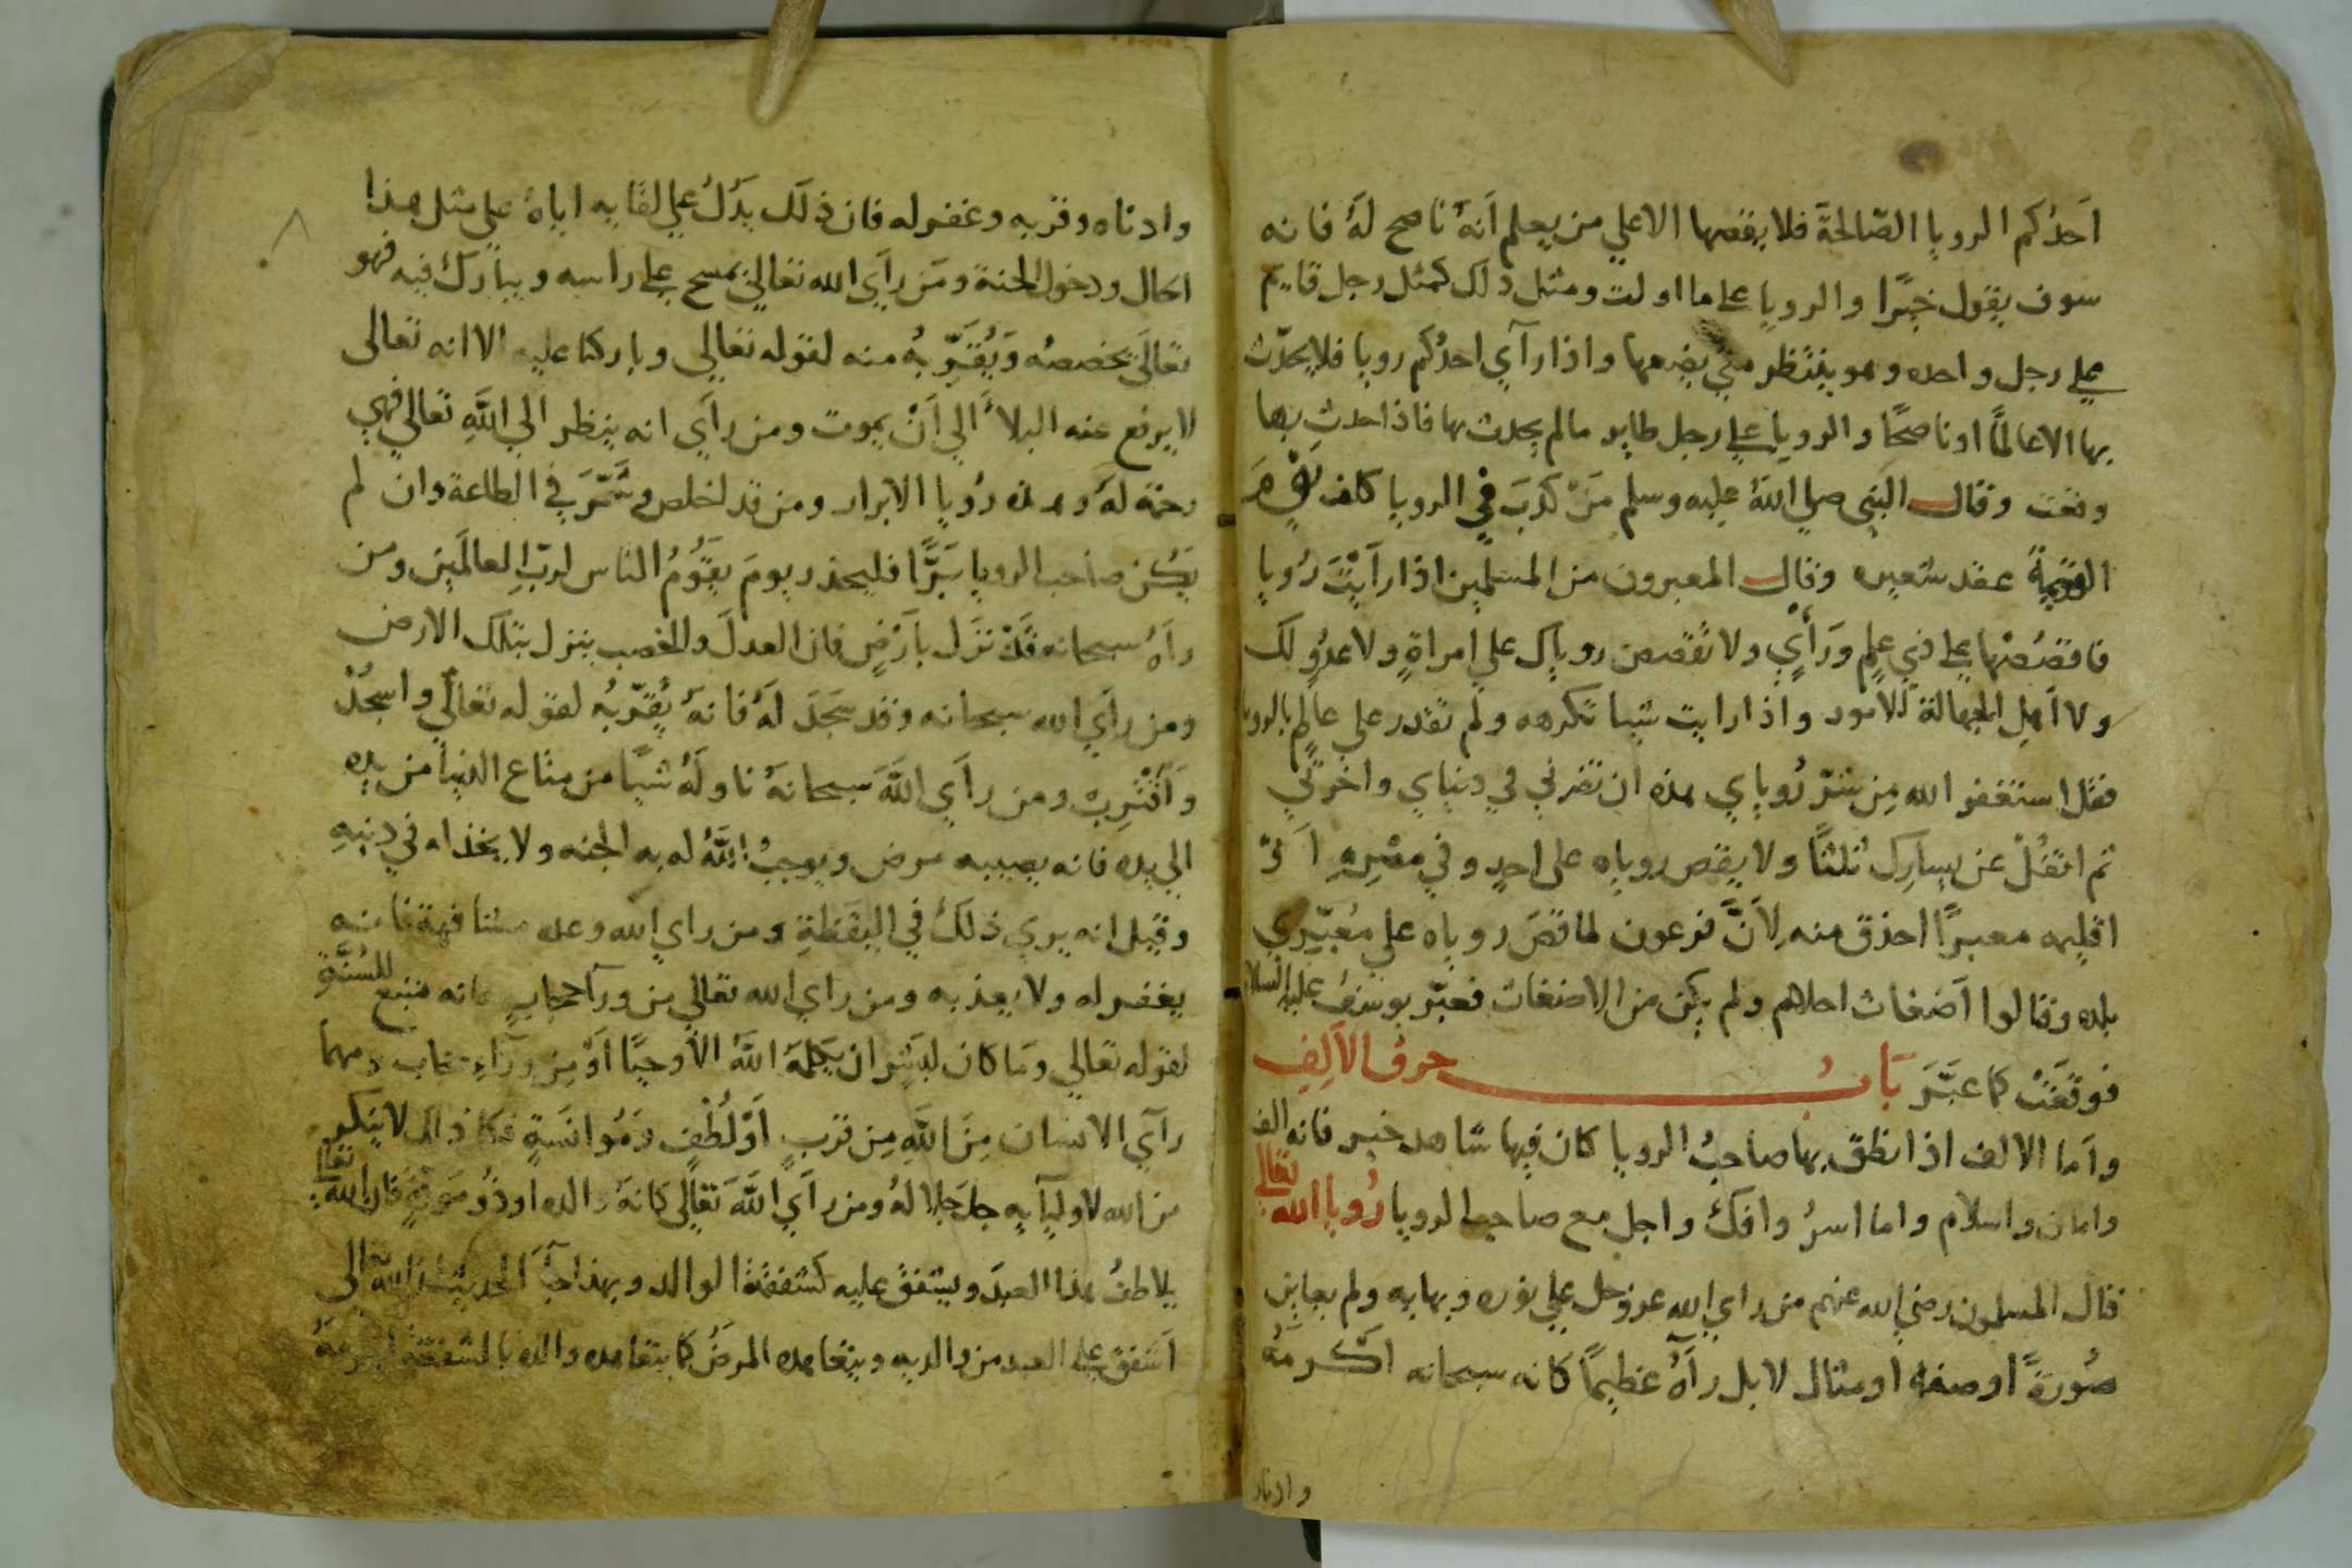 احدكم الرويا الصالحة فلا يقصها الا علي من يعلم انه ناصح له فانه
سوف يقول خيرا والرويا علي ما اولت ومثل ذلك كمثل رجل قايم
علي رجل واحده وهو ينتظر متي يضعها واذا رآي احدكم رويا فلا يحدث
بها الا عالما او ناصحا والرويا علي رجل طاير ما لم يحدث بها فاذا حدث بها
وقعت وقال النبي صلي الله عليه وسلم من كذب في الرويا كلف يوم
القيمة عقد شعيره وقال المعبرون من المسلمين اذا رايت رويا
فاقصصها علي ذي علم وراي ولا تقصص روياك علي امراة ولا عدو لك
ولا اهل الجهالة الامور واذا رايت شيا تكرهه ولم تقدر علي عالم بالرويا
فقل استغفر الله من شر روياي هذه ان تضرني في دنياي واخرتي
ثم اتفل عن يسارك ثلثا ولا يقص روياه علي احد وفي
اقليمه معبرا احذق منه لان فرعون لما قص روياه علي معبري
بلده وقالوا اضغاث احلام ولم يكن من الاضغاث فعبر يوسف عليه السلام
فوقعت كما عبر باب حرف الالف
واما الالف اذا نطق بها صاحب الرويا كان فيها شاهد خير فانه الف
وامان واسلام واما اسر وافك واجل مع صاحب الرويا رويا الله تعالي
قال المسلمون رضي الله عنهم من راي الله عز وجل علي نوره وبهايه ولم يعاين
صورة او صفة او مثال لا بل رآه عظيما كانه سبحانه اكرمه
وادناه
وادناه وقربه وغفر له فان ذلك يدل علي لقايه اياه علي مثل هذا
الحال ودخول الجنة ومن رآي الله تعالي يمسح علي راسه ويبارك فيه فهو
تعالي يخصصه ويقربه منه لقوله تعالي وباركنا عليه الا انه تعالي
لا يرفع عنه البلا الي ان يموت ومن رآي انه ينظر الي الله تعالي فهي
رحمة له وهذه رويا الابرار ومن قد اخلص وشمر في الطاعة وان لم
يكن صاحب الرويا برا فليحذر يوم يقوم الناس لرب العالمين ومن
رآه سبحانه قد نزل بارض فان العدل والخصب ينزل بتلك الارض
ومن رآي الله سبحانه وقد سجد له فانه يقربه لقوله تعالي واسجد
واقترب ومن رآي الله سبحانه ناوله شيا من متاع الدنيا من يده
الي يده فانه يصيبه مرض ويوجب الله له به الجنه ولا في دنيه
وقيل انه يري ذلك في اليقظة ومن راي الله وعده فانه
يغفر له ولا يعذبه ومن راي الله تعالي من ورآ حجاب فانه متبع للسنة
لقوله تعالي وما كان لبشر ان يكلمه الله الا وحيا او من ورآء حجاب ومهما
رآي الانسان من الله من قرب او لطف وموانسة فكل ذلك لا ينكر
من الله لاوليآيه جل جلاله ومن رآي الله تعالي كانه والده او ذو مودة فان الله تعالي
يلاطف هذا العبد ويشفق عليه كشفقة الوالد وبهذا جآ الحديث ان الله تعالي
اشفق علي العبد من والديه ويتعاهده المرض كما يتعاهده والده بالشفقة